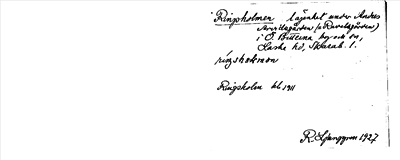 Ringsholmen lägenhet under Andes
(o Ravelsgården)
i Ö. Bitterna by och sn,
Laske hd, Skarab. l.
ringsholmen
Ringsholm hl 1911
R. Ljunggren 1927